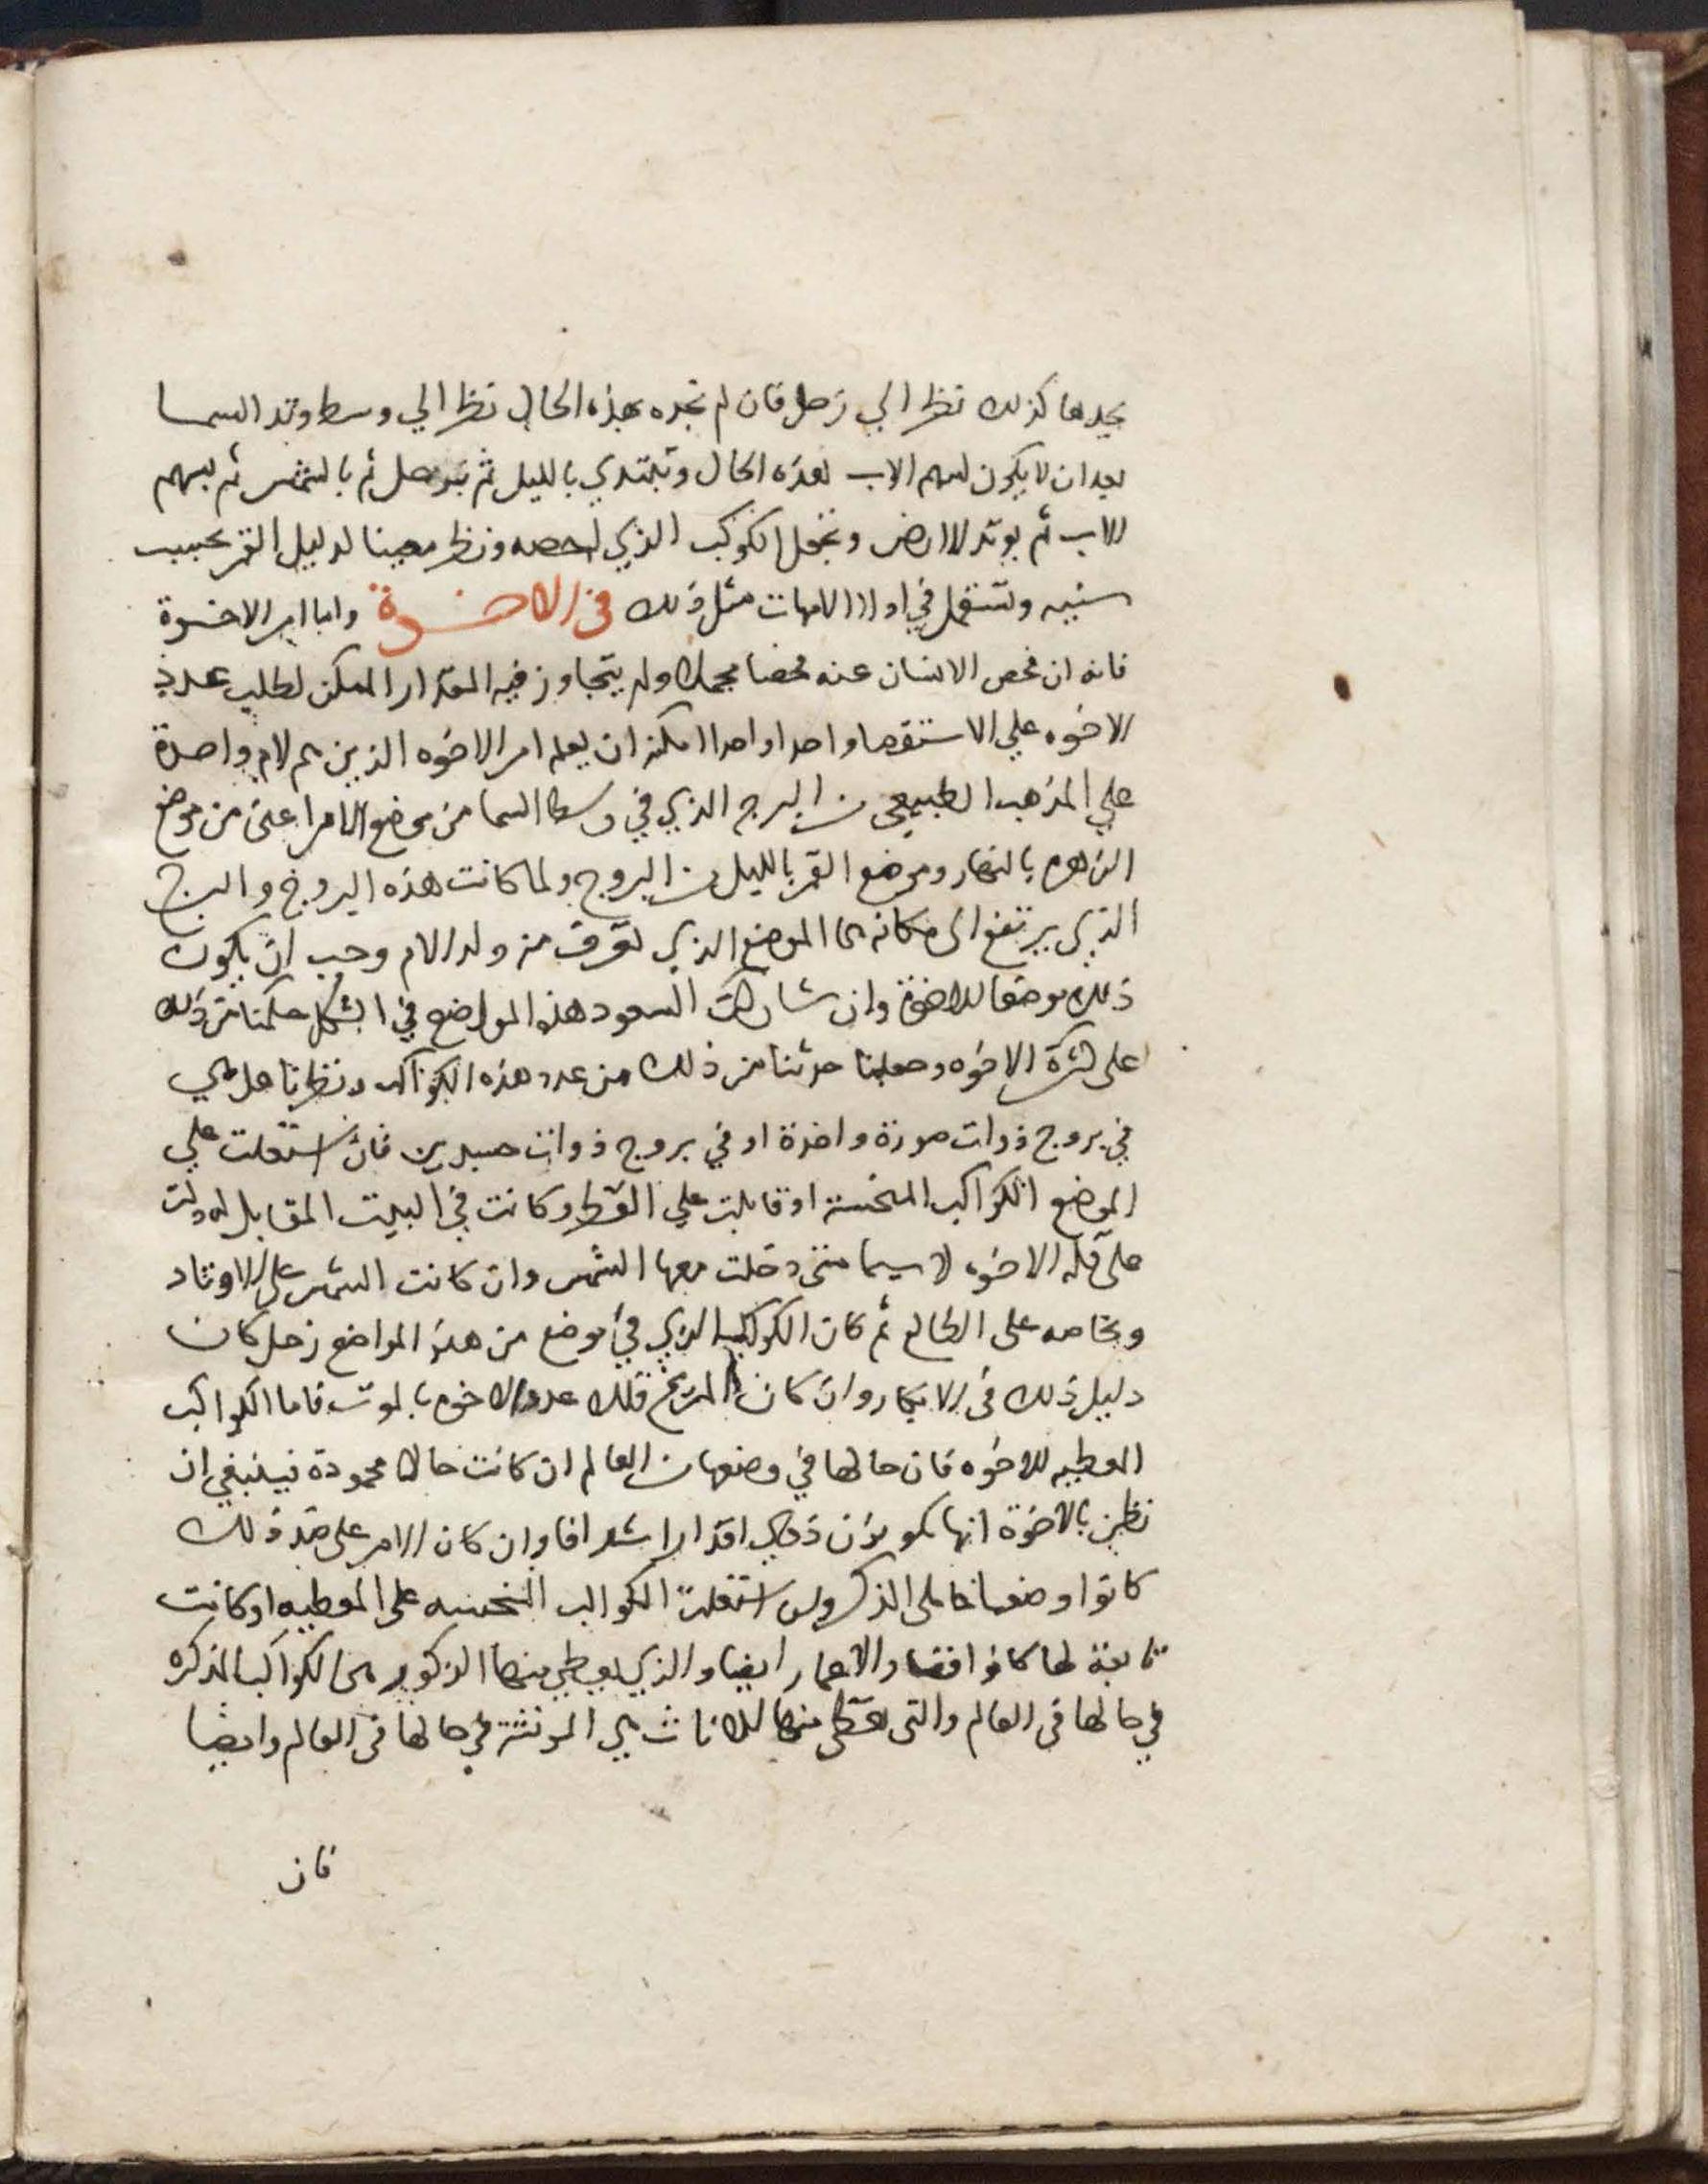 يجدها كذلك نظر الي زحل فان لم تجده بهذه الحال نظر الي وسط وتد السما
بعد ان لا يكون لسهم الاب بهذه الحال وتبتدي بالليل ثم بزحل ثم بالشمس ثم بسهم
الاب ثم بوتد الارض وتجعل الكوكب الذي ونظر معينا لدليل القمر بحسب
سنيه وتستعمل في اولاد الامهات مثل ذلك في الاخوة واما امر الاخوة
فانه ان فحص الانسان عنه فحصا مجملا ولم يتجاوز فيه المقدار الممكن لطلب عدد
الاخوه علي الاستقصا واحدا واحدا امكنه ان يعلم امر الاخوه الذين هم لام واحدة
علي المذهب الطبيعي من البرج الذي في وسط السما من موضع الام اعنى من موضع
الزهره بالنهار وموضع القمر بالليل من البروج ولما كانت هذه البروج والبرج
الذي يرتفع الى مكانه هما الموضع الذي تعرف منه ولد الام وجب ان يكون
ذلك موضعا للاخوة وان شاركت السعود هذه المواضع في الشكل حكمنا من ذلك
على كثرة الاخوه وجعلنا حدثنا من ذلك من عدد هذه الكواكب ونظرنا هل هي
في بروج ذوات صورة واحدة او في بروج ذوات جسدين فان استعلت علي
الموضع الكواكب المنحسة او قابلت علي القطر وكانت في البيت المقابل له دلت
على قلة الاخوه لا سيما متى دخلت معها الشمس وان كانت الشمس على الاوتاد
وبخاصه على الطالع ثم كان الكوكب الذي في موضع من هذه المواضع زحل كان
دليل ذلك في الابكار وان كان المريخ قلل عدد الاخوه بالموت فاما الكواكب
المعطيه للاخوه فان حالها في وضعها من العالم ان كانت حالا محمودة فينبغي ان
نظن بالاخوة انها يكونون ذوي اقدار اشرافا وان كان الامر على ضد ذلك
كانوا وضعا خاملى الذكر وان استعلت الكواكب النحسه على المعطيه او كانت
تابعة لها كانوا الاعمار ايضا والذي يعطي منها الذكور هى الكواكب المذكره
في حالها في العالم والتى تعطى منها للاناث هي المونثة في حالها في العالم وايضا
فان